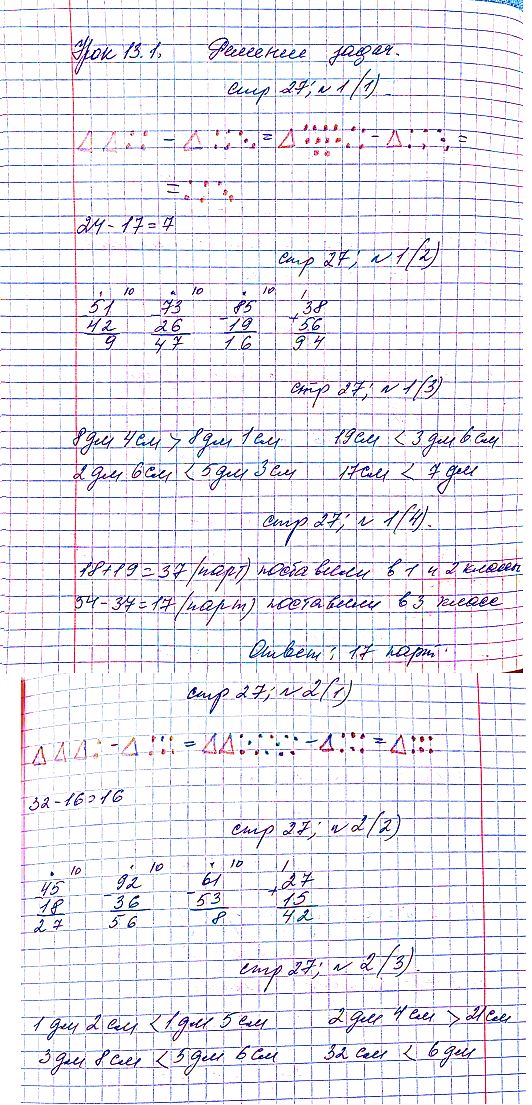 Урок 13.1. Решение задач.
стр 27; № 1(1)
- = - =
=
24-17=7
стр 27; № 1(2)
10 10 10 1
-51 -73 -85 +38
42 26 19 56
9 47 16 94
стр 27; № 1(3)
8дм 4см > 8дм 1см 19см < 3дм 6см
2дм 6см < 5дм 3см 17см < 7дм
стр 27; № 1(4).
18+19=37 (парт) поставили в 1 и 2 классы
54-37=17 (парт) поставили в 3 класс
Ответ: 17 парт.
стр 27; № 2(1)
- = - =
32-16=16
стр 27; № 2(2)
10 10 10 1
-45 -92 -61 +27
18 36 53 15
27 56 8 42
стр 27; № 2(3).
1дм 2см < 1дм 5см 2дм 4см > 21см
3дм 8см < 5дм 6см 32см < 6дм